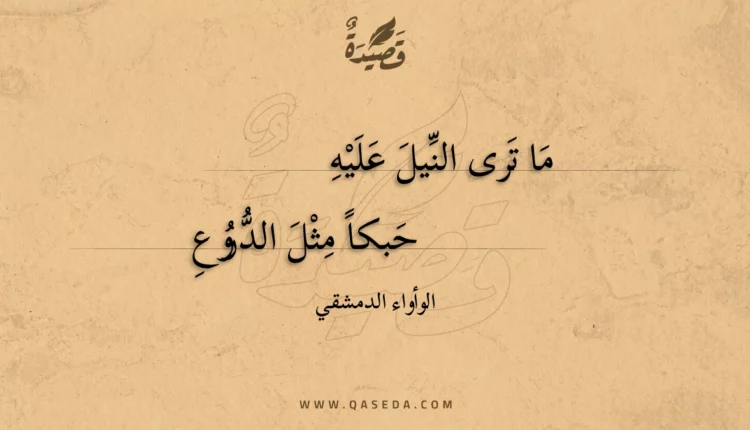 قَصِيْدَةٌ
مَا تَرى النِّيلَ عَلَيْهِ
حَبكاً مِثْلَ الدُّرُوُعِ
الوأواء الدمشقي
WWW.QASEDA.COM